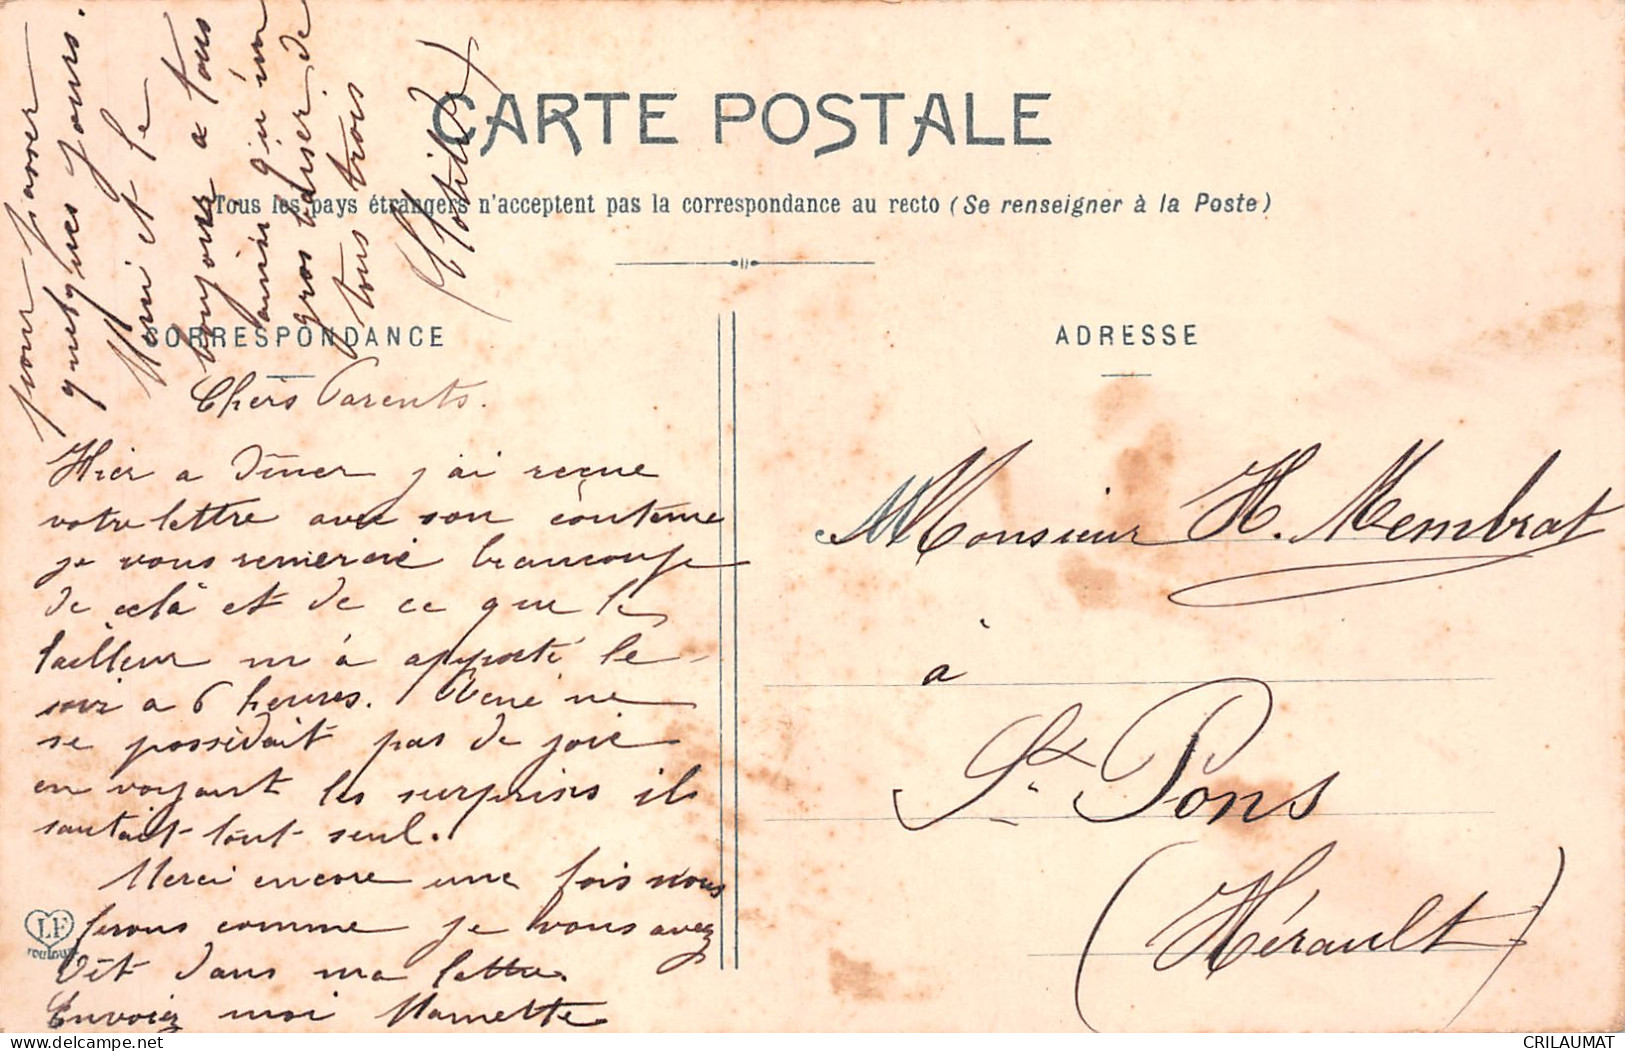 CARTE POSTALE
Tous les pays étrangers n'acceptent pas la correspondance au recto (Se renseigner à la Poste)
CORRESPONDANCE
ADRESSE
Chers Parents.
Hier a Dîner j'ai reçue
votre lettre avec son contenue
je vous remercie beaucoup
de celà et de ce que le
tailleur m'a apporté le
soir a 6 heures. René ne
se possédait pas de joie
en voyant les surprises il
sautait tout seul.
Merci encore une fois nous
ferons comme je vous avez
Dit dans ma lettre.
Envoiez moi Mamette
pour passer
quelques jours.
Mimi et le
toujours a tous
ainsi qu'un
gros baiser de
tous trois
Clotilde
Monsieur H. Membrat
à
St. Pons
(Hérault)
LF
Toulouse
CRILAUMAT